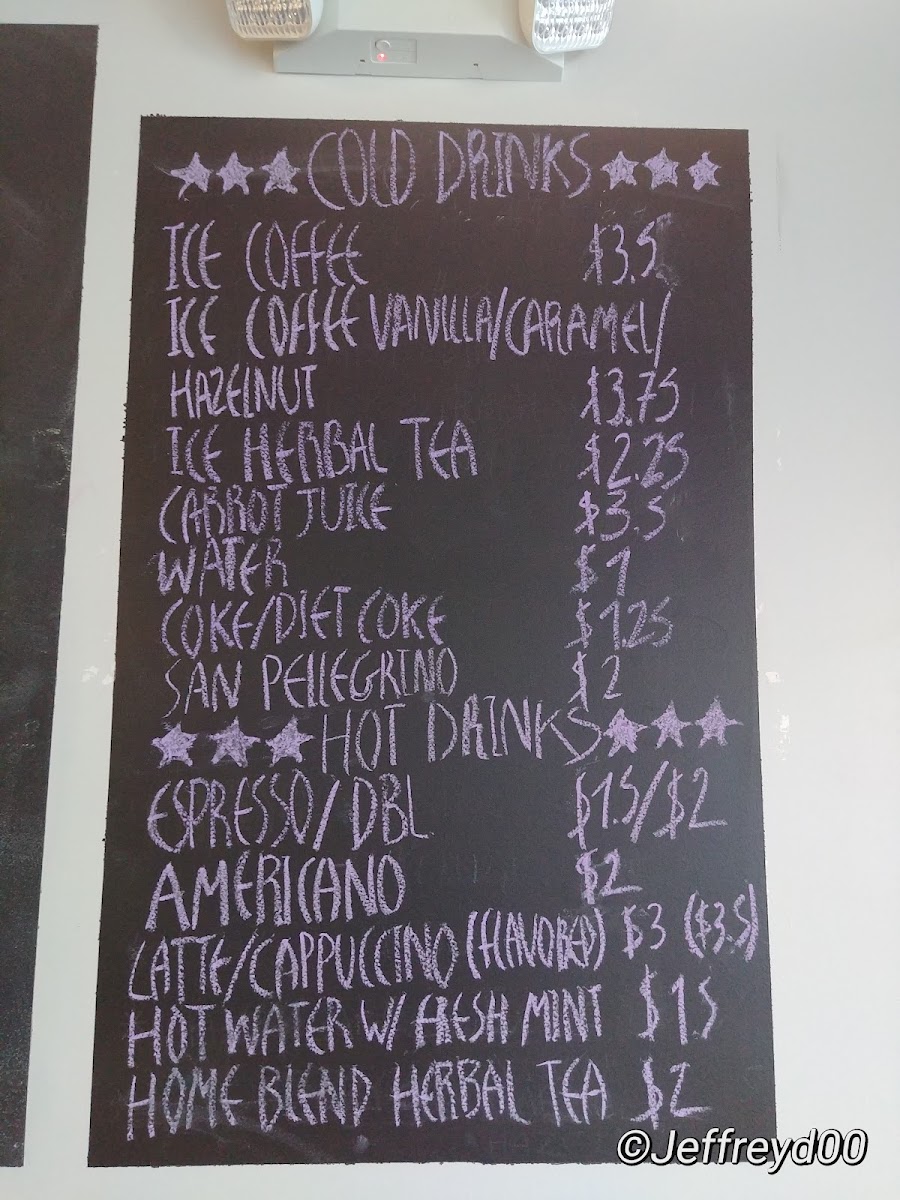 COLD DRINKS
ICE COFFEE $3.5
ICE COFFEE VANILLA/CARAMEL/
HAZELNUT $3.75
ICE HERBAL TEA $2.25
CARROT JUICE $3.5
WATER $1
COKE/DIET COKE $1.25
SAN PELLEGRINO $2
HOT DRINKS
ESPRESSO/DBL $1.5/$2
AMERICANO $2
LATTE/CAPPUCCINO (FLAVORED) $3 ($3.5)
HOT WATER W/ FRESH MINT $1.5
HOME BLEND HERBAL TEA $2
©Jeffreyd00